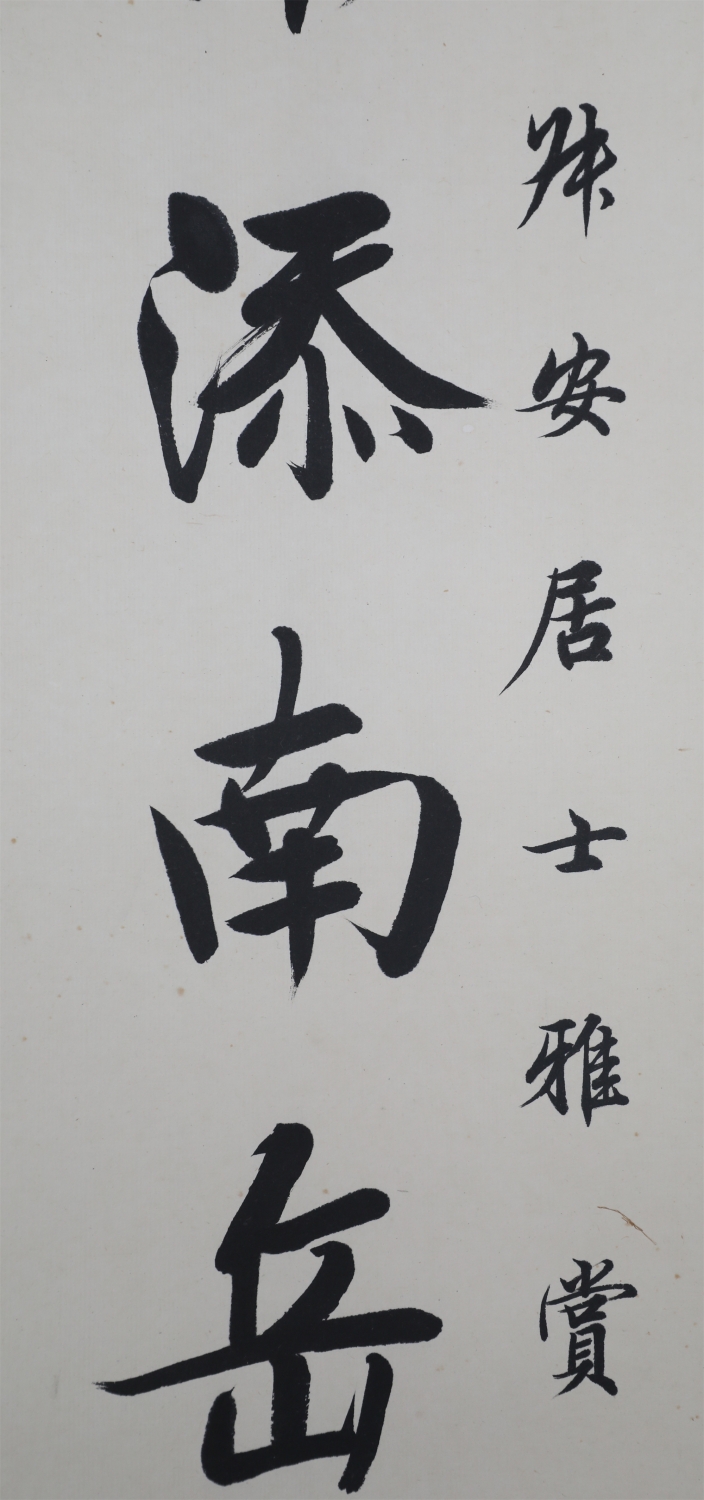 安居士雅賞
添南岳